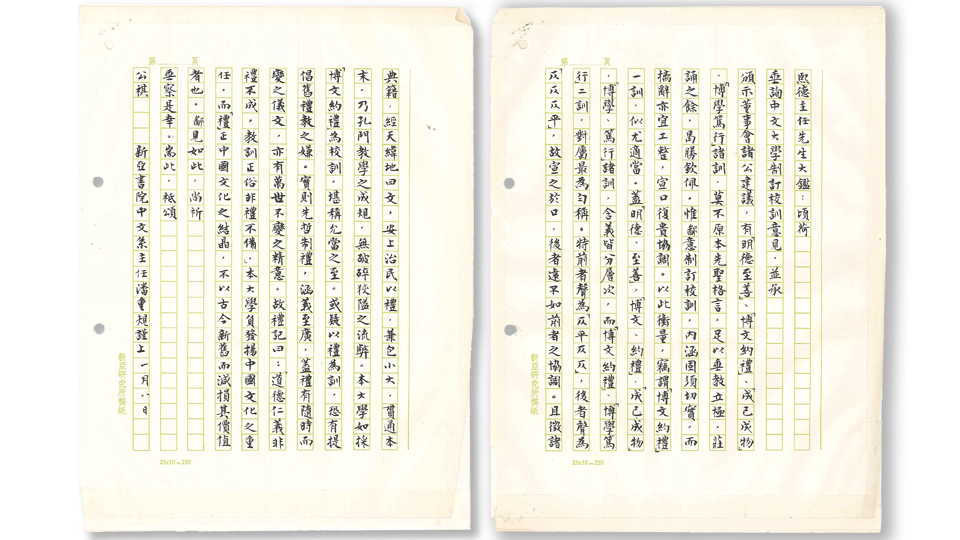 第 頁
熙德主任先生大鑑：頃荷
垂詢中文大學制訂校訓意見，並承
頒示董事會諸公建議，有「明德至善」、「博文約禮」、「成己成物」
、「博學篤行」諸訓，莫不原本先聖格言，足以垂教立極，莊
誦之餘，曷勝欽佩。惟鄙意制訂校訓，內涵固須切實，而
摛辭亦宜工整，宣口復貴協調。以此衡量，竊謂「博文約禮」
一訓，似尤適當。蓋「明德、至善」，「博文、約禮」，「成己、成物」
，「博學、篤行」諸訓，含義皆分層次，而「博文約禮」、「博學篤
行」二訓，對屬最為勻稱。特前者聲為「仄平仄仄」，後者聲為
「仄仄仄平」，故宣之於口，後者遠不如前者之協調。且徵諸
新亞研究所稿紙
25x10=250
第 頁
典籍，經天緯地曰文，安上治民以禮，兼包小大，貫通本
末，乃孔門教學之成規，無破碎狹隘之流弊。本大學如採
「博文約禮」為校訓，堪稱允當之至。或疑以禮為訓，恐有提
倡舊禮教之嫌。實則先哲制禮，涵義至廣，蓋禮有隨時而
變之儀文，亦有萬世不變之精意。故禮記曰：「道德仁義非
禮不成，教訓正俗非禮不備。」本大學負發揚中國文化之重
任，而「禮」正中國文化之結晶，不以古今新舊而減損其價值
者也。鄙見如此，尚祈
垂察是幸。耑此，祗頌
公祺 新亞書院中文系主任潘重規謹上 一月八日
新亞研究所稿紙
25x10=250